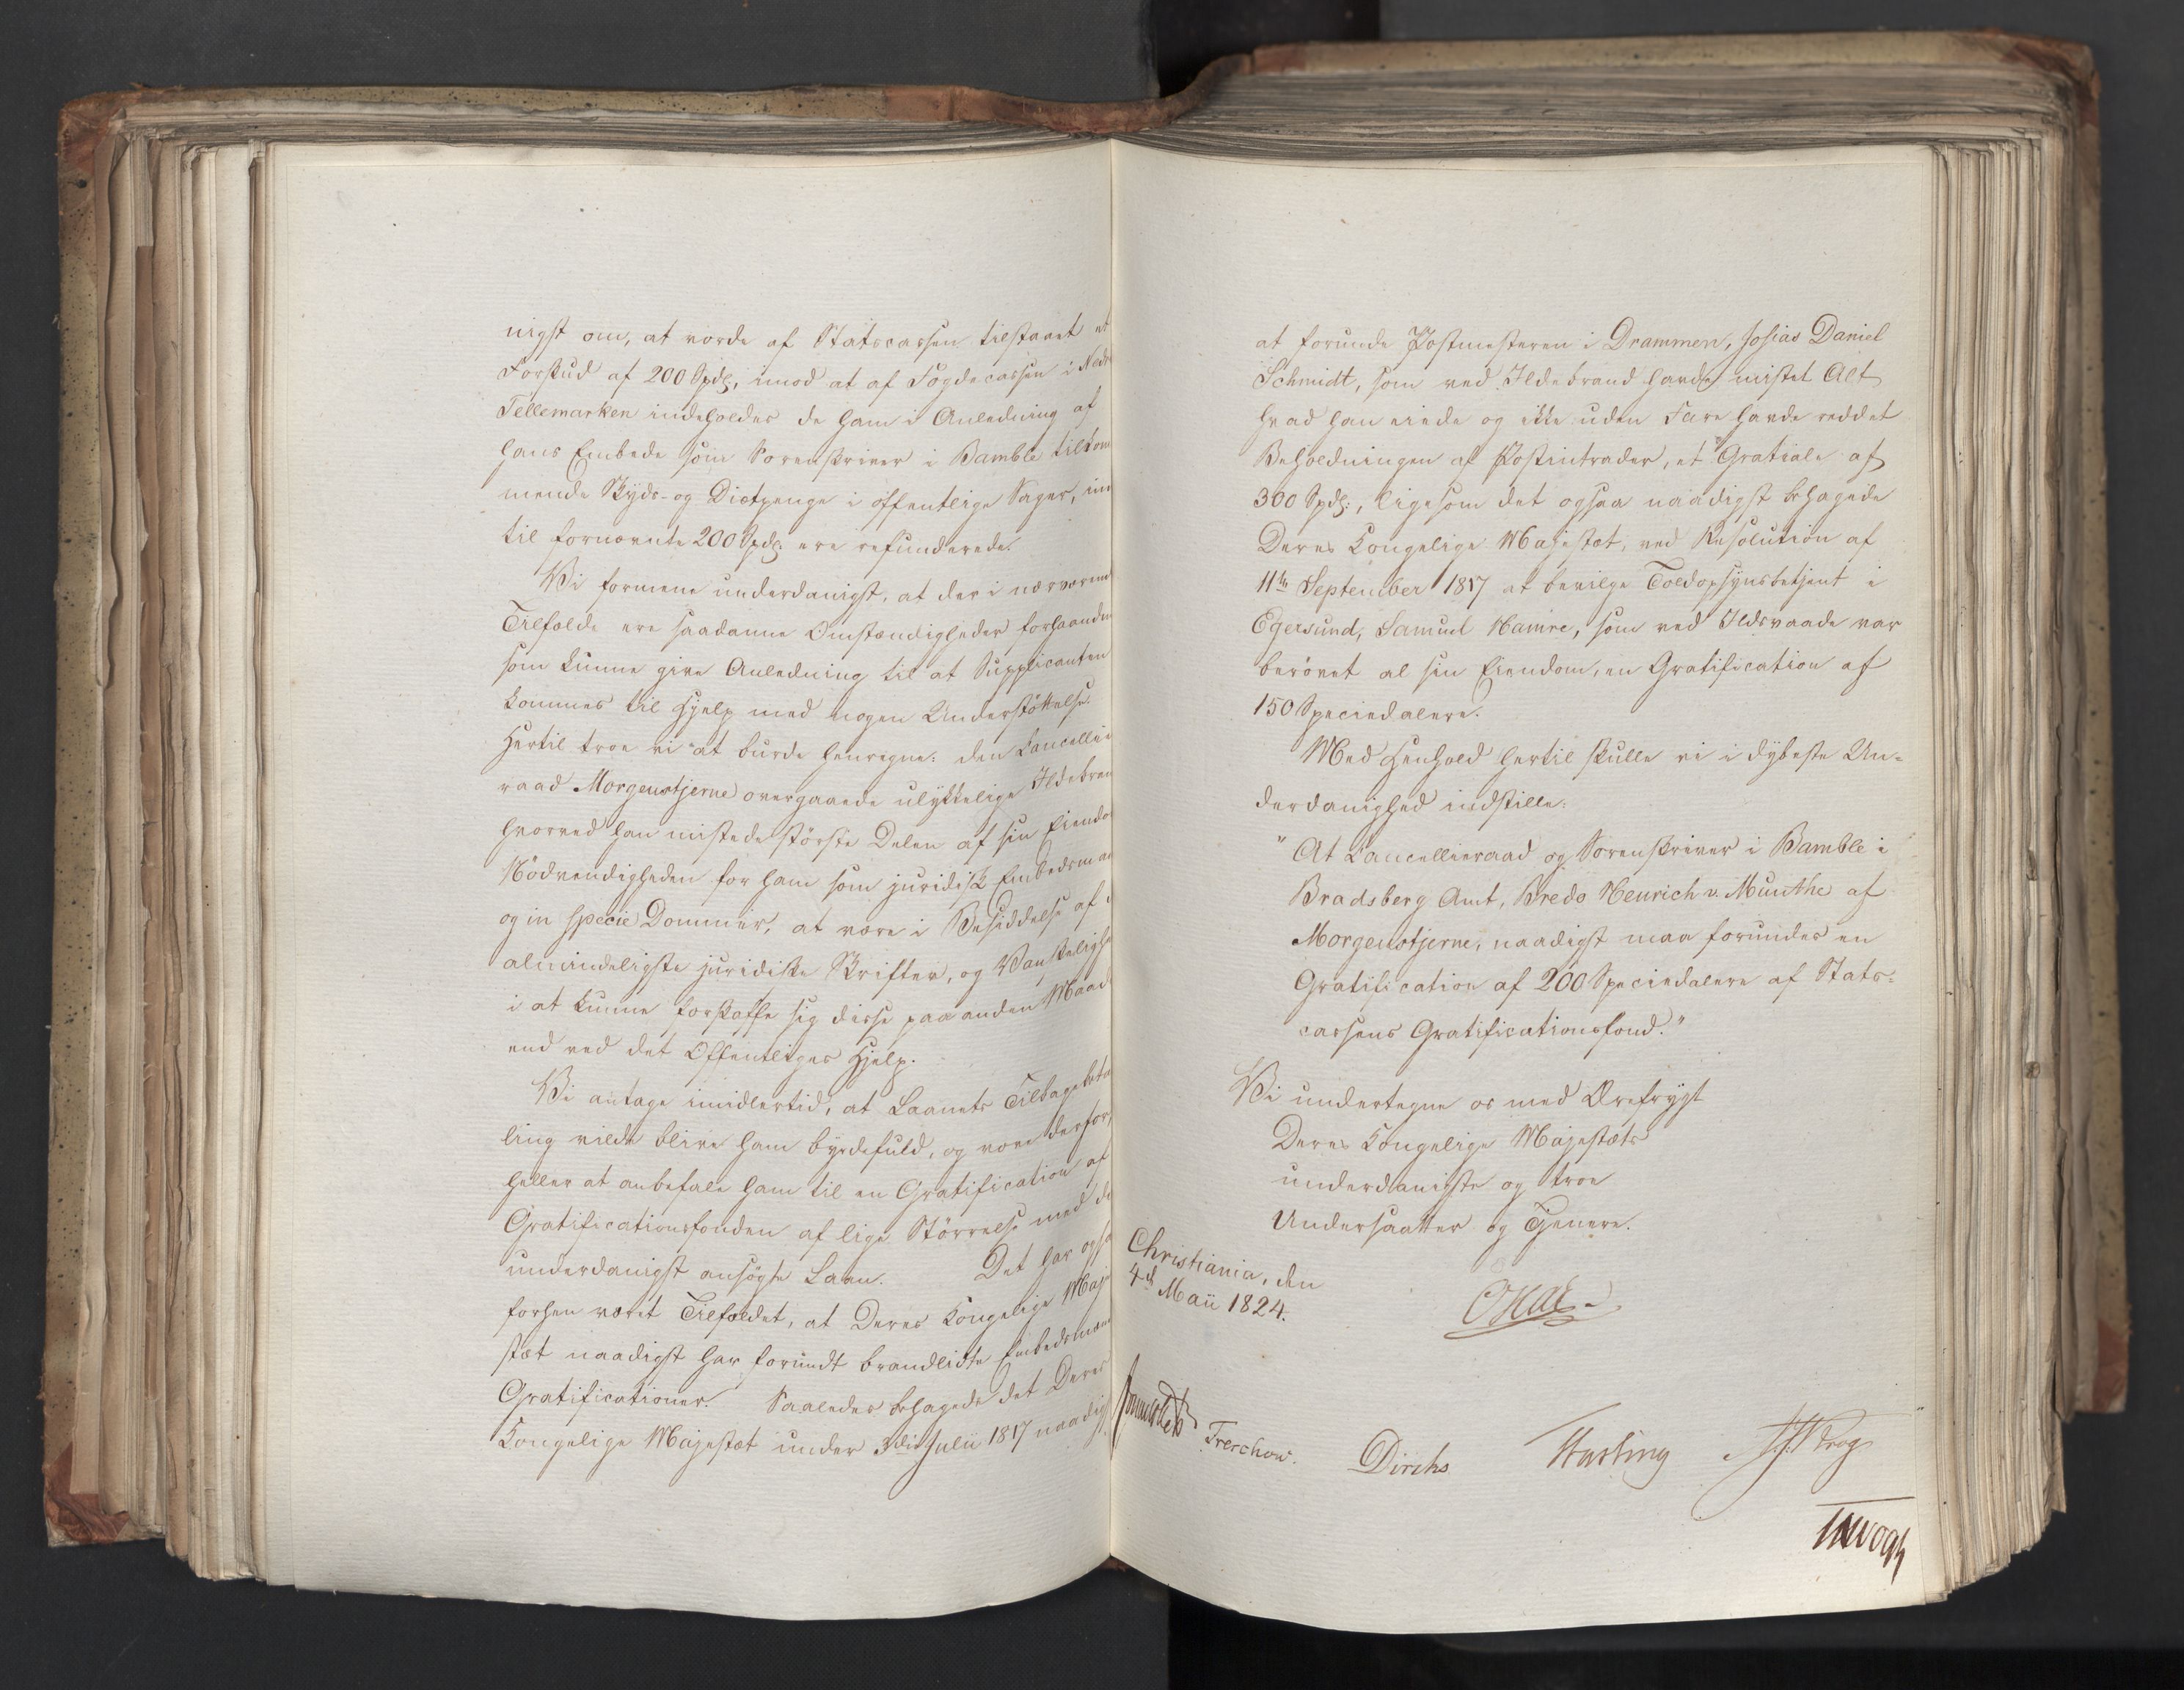 nigst om, at vorde af Statscassen tilstaaet et
Forskud af 200 Spdlr, imod at af Fogdecassen i Nedre
Tellemarken indeholdes de ham i Anledning af
hans Embede som Sorenskriver i Bamble tilkom
mende Skyds- og Diætpenge i offentlige Sager, ind
til fornævnte 200 Spdlr: ere refunderede.
Vi formene underdanigst, at der i nærværende
Tilfælde ere saadanne Omstændigheder forhaanden
som kunne give Anledning til at Supplicanten
kommes til Hjelp med nogen Understöttelse.
Hertil troe vi at burde henregne: den Cancellie
raad Morgenstjerne overgaaede ulykkelige Ildebrand
hvorved han mistede störste Delen af sin Eiendom
Nödvendigheden for ham som juridisk Embedsmand
og in specie Dommer, at være i Besiddelse af de
almindeligste juridiske Skrifter, og Vanskelighe
i at kunne forskaffe sig disse paa anden Maade
end ved det Offentliges Hjelp.
Vi antage imidlertid, at Laanets Tilbagebeta
ling vilde blive ham byrdefuld, og vove derfor,
heller at anbefale ham til en Gratification af
Gratificationsfonden af lige Störrelse med de
underdanigst ansögte Laan. Det har ogsaa
forhen været Tilfældet, at Deres Kongelige Maje
stæt naadigst har forundt brandlidte Embedsmænd
Gratificationer. Saaledes behagede det Deres
Kongelige Majestæt under 3die Julii 1817 naadigst
at forunde Postmesteren i Drammen, Josias Daniel
Schmidt, som ved Ildebrand havde mistet Alt
hvad han eiede og ikke uden Fare havde reddet
Beholdningen af Postintrader, et Gratiale af
300 Spdlr:, ligesom det ogsaa naadigst behagede
Deres Kongelige Majestæt, ved Resolution af
11te September 1817 at bevilge Toldopsynsbetjent i
Egersund, Samuel Hamre, som ved Ildsvaade var
berövet al sin Eiendom, en Gratification af
150 Speciedalere.
Med Henhold hertil skulle vi i dybeste Un-
derdanighed indstille:
"At Cancellieraad og Sorenskriver i Bamble i
Bradsberg Amt, Bredo Henrich v. Munthe af
Morgenstjerne, naadigst maa forundes en
Gratification af 200 Speciedalere af Stats-
cassens Gratificationsfond."
Vi undertegne os med Ærefrygt
Deres Kongelige Majestæts
underdanigste og troe
Undersaatter og Tjenere.
Christiania, den
4de Maii 1824.
Sommerhielm
Treschow.
Diriks
Fasting